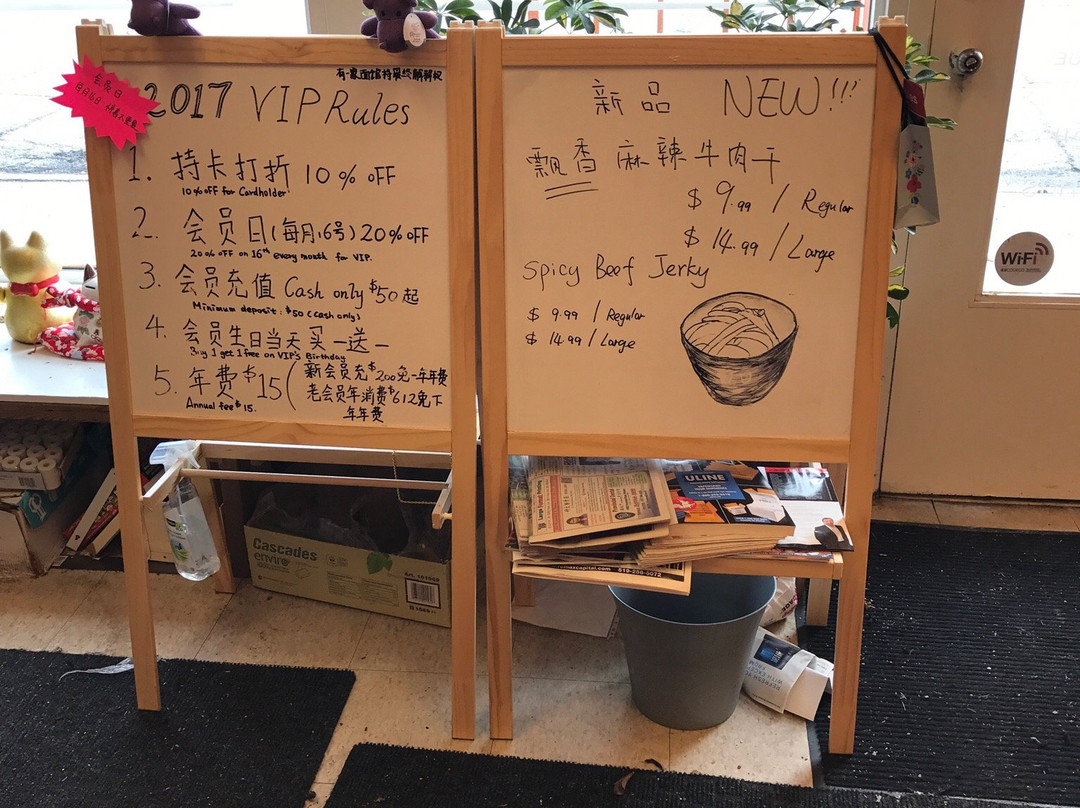 会员日
有一家面馆持最终解释权
2017 VIP Rules
1. 持卡打折 10% OFF
10% OFF for Cardholder
2. 会员日(每月16号) 20% OFF
20% OFF on 16th every month for VIP.
3. 会员充值 Cash only $50起
Minimum deposit: $50 (Cash only)
4. 会员生日当天买一送一
Buy 1 get 1 free on VIP's Birthday
5. 年费$15(新会员充$200免一年年费
老会员年消费$612免下
年年费
Annual fee $15.
新品 NEW!!!
飘香麻辣牛肉干
$9.99 / Regular
$14.99 / Large
Spicy Beef Jerky
$9.99 / Regular
$14.99 / Large
WiFi
ULINE
Cascades
enviro
819-288-5072